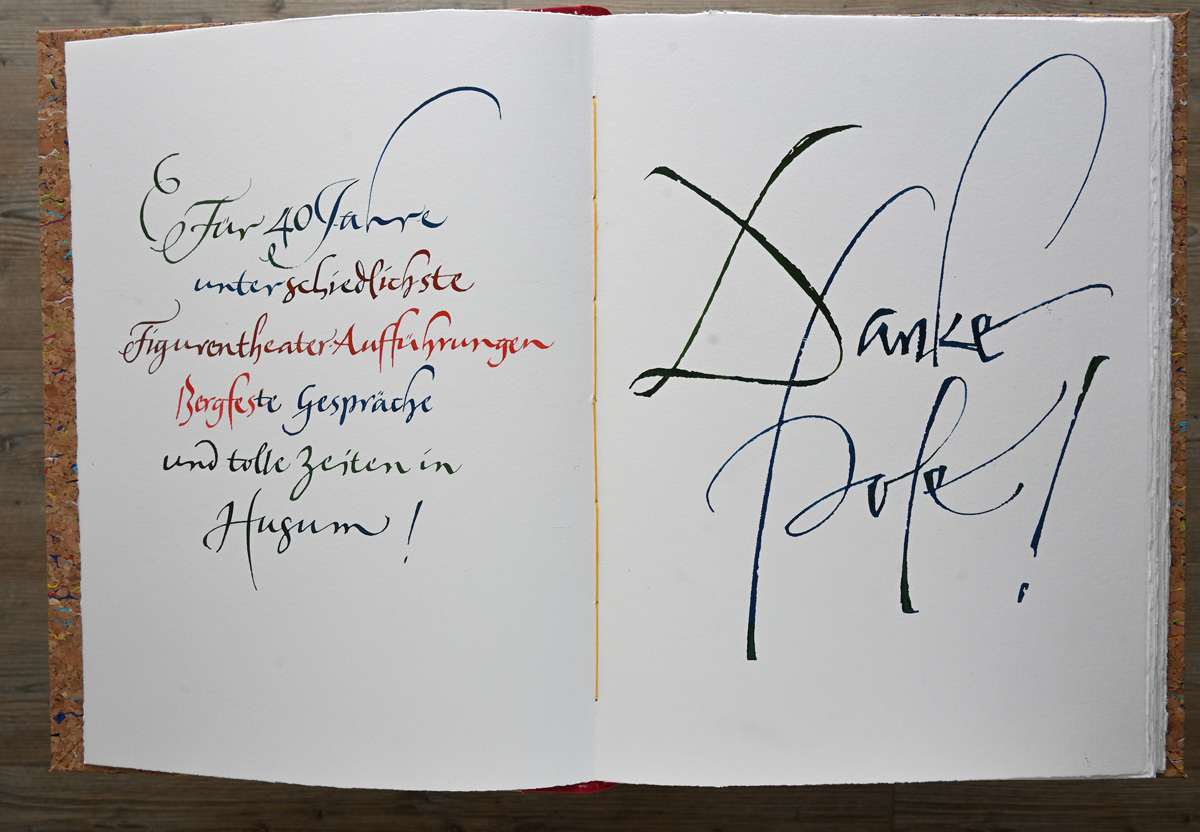 Für 40 Jahre
unterschiedlichste
Figurentheater-Aufführungen
Bergfeste Gespräche
und tolle Zeiten in
Husum!
Danke
Pole!